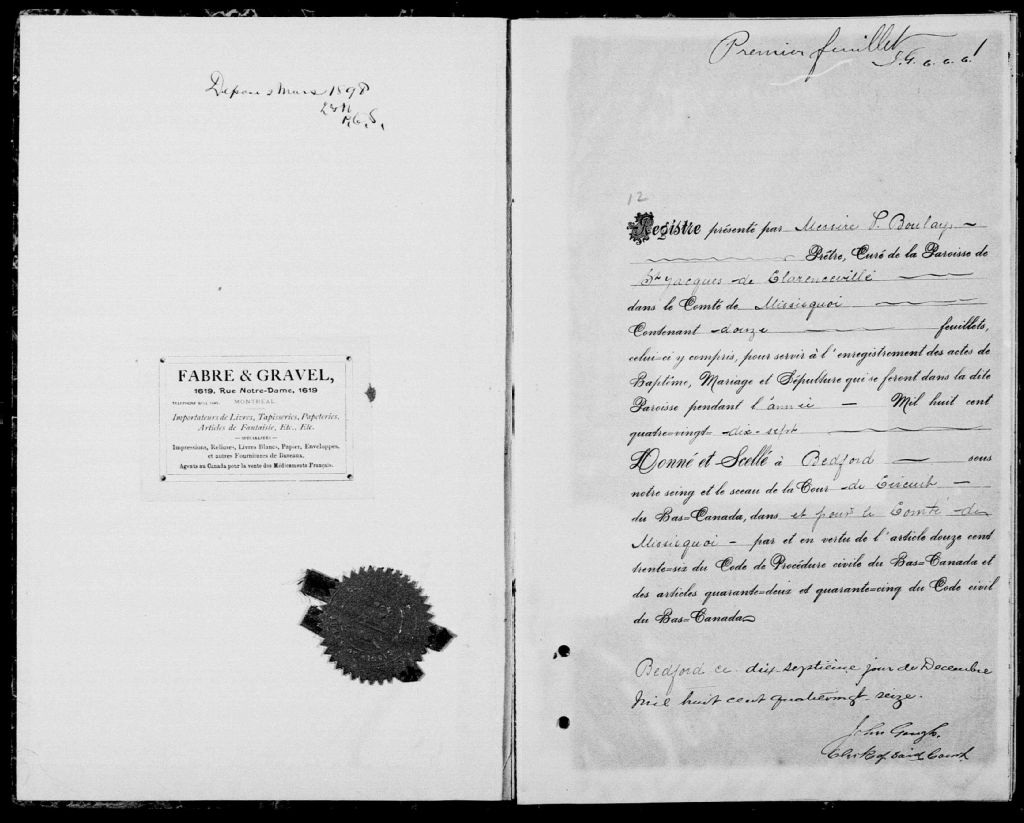 Mars 1898
FABRE & GRAVEL,
1619, Rue Notre-Dame, 1619
MONTREAL
Importateurs de Livres, Tapisseries, Papeteries,
Articles de Fantaisie, Etc., Etc.
— SPÉCIALITÉS —
Impressions, Reliures, Livres Blancs, Papier, Enveloppes,
et autres Fournitures de Bureaux.
Agents au Canada pour la vente des Médicaments Français.
Premier feuillet 1
12
Registre présenté par Messire P. Boulay
Prêtre, Curé de la Paroisse de
St Jacques de Clarenceville
dans le Comté de Missisquoi
Contenant douze feuillets,
celui=ci y compris, pour servir à l'enregistrement des actes de
Baptême, Mariage et Sépulture qui se feront dans la dite
Paroisse pendant l'année — Mil huit cent
quatre=vingt= dix-sept
Donné et Scellé à Bedford — sous
notre seing et le sceau de la Cour de Circuit —
du Bas=Canada, dans et pour le Comté de
Missisquoi — par et en vertu de l'article douze cent
trente=six du Code de Procédure civile du Bas=Canada et
des articles quarante=deux et quarante=cinq du Code civil
du Bas=Canada
Bedford ce dix-septième jour de Decembre
Mil huit cent quatrevingt seize.
John Gough,
Clerk of said Court